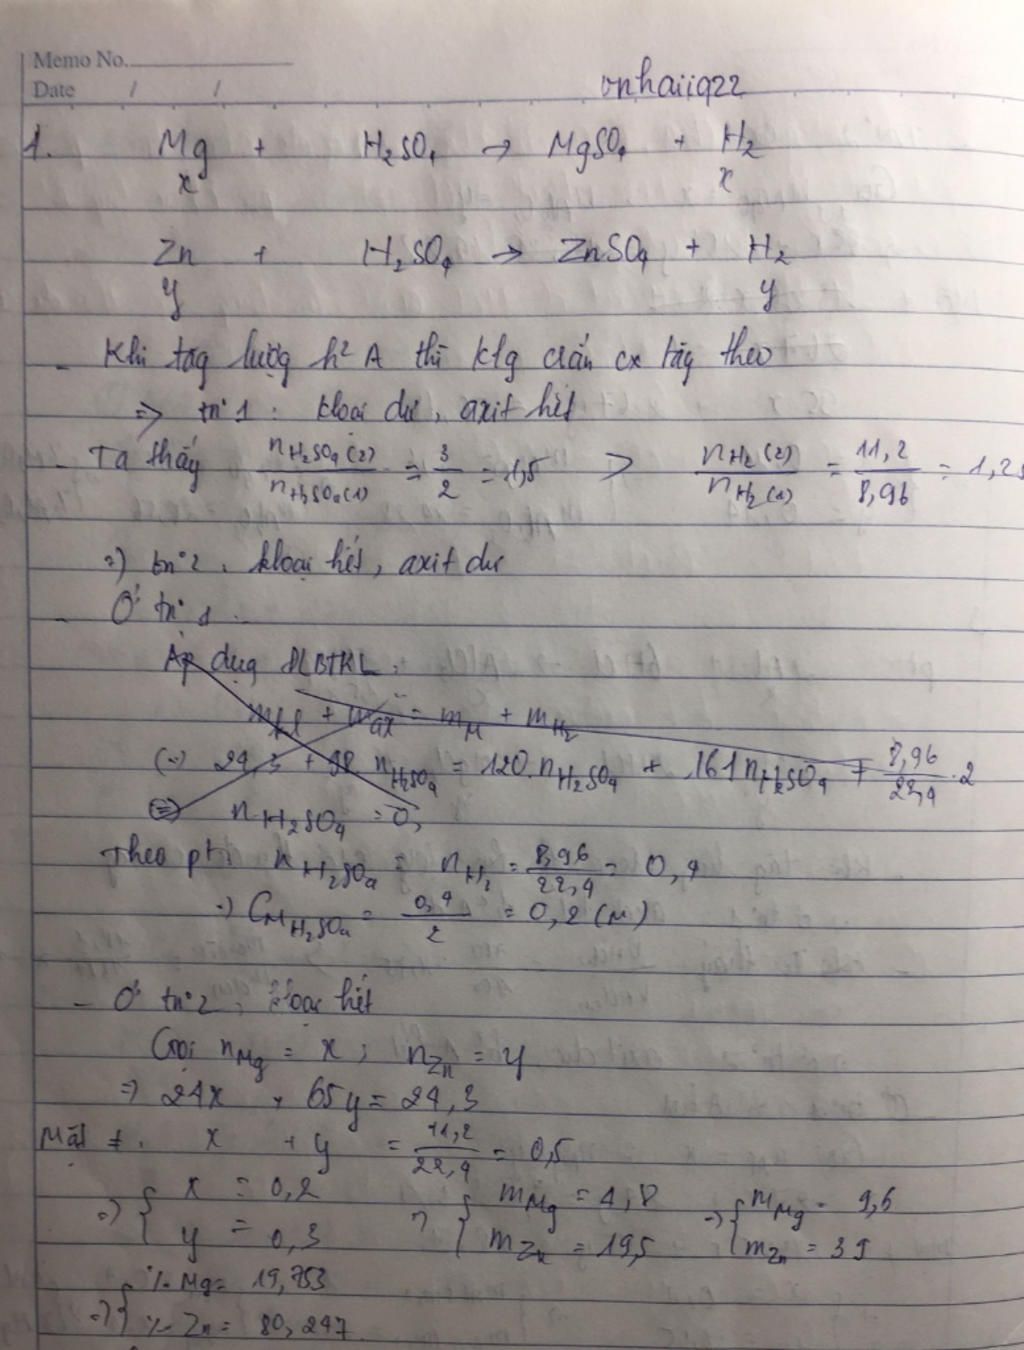 Memo No.
Date / /
vnhaii922
1. Mg + H₂SO₄ → MgSO₄ + H₂
x x
Zn + H₂SO₄ → ZnSO₄ + H₂
y y
- Khi tăg lượg h² A thì klg crắn cx tăg theo
=> tn° 1 : kloại dư, axit hết
- Ta thấy nH₂SO₄(2)/nH₂SO₄(1) = 3/2 = 1,5 > nH₂(2)/nH₂(1) = 11,2/8,96 = 1,25
=) tn° 2 , kloại hết, axit dư
- Ở tn° 1
Áp dụg ĐLBTKL :
mkl + max = mM + mH₂
(=) 24,3 + 98 nH₂SO₄ = 120.nH₂SO₄ + 161nH₂SO₄ + 8,96/22,4 .2
(=) nH₂SO₄ = 0,
Theo pt: nH₂SO₄ = nH₂ = 8,96/22,4 = 0,4
=) CM H₂SO₄ = 0,4/2 = 0,2 (M)
- Ở tn° 2 , kloại hết
Gọi nMg = x ; nZn = y
=) 24x + 65y = 24,3
Mặt ≠ . x + y = 11,2/22,4 = 0,5
=) { x = 0,2 => { mMg = 4,8 => { mMg = 9,6
y = 0,3 mZn = 19,5 mZn = 39
=) { % Mg = 19,753
% Zn = 80,247